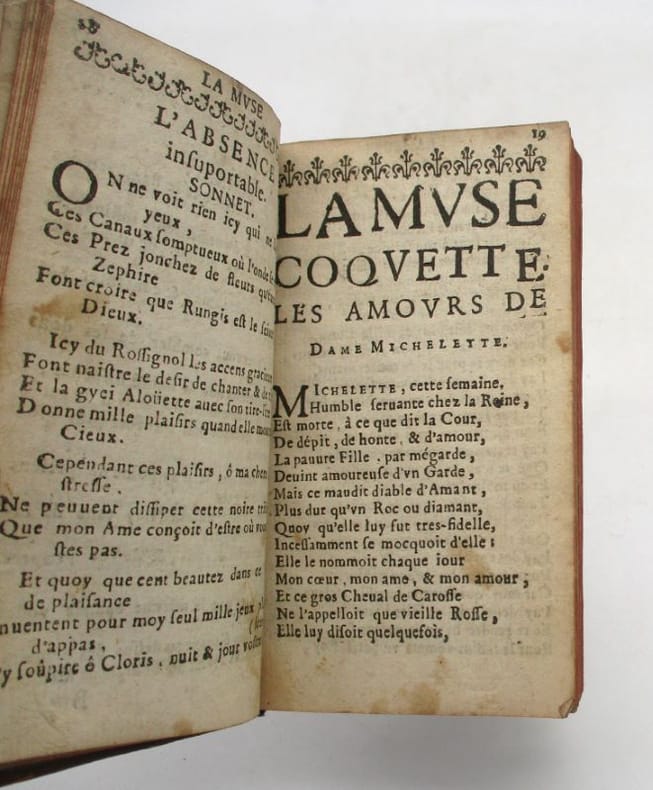 18
LA MVSE
L'ABSENCE
inſuportable.
SONNET.
ON ne voit rien icy qui ne
yeux,
Ces Canaux ſomptueux où l'onde
Ces Prez jonchez de fleurs
Zephire
Font croire que Rungis eſt le
Dieux.
Icy du Roſſignol les accens
Font naiſtre le deſir de chanter & de
Et la gyei Aloüette auec ſon
Donne mille plaiſirs quand elle
Cieux.
Cependant ces plaiſirs, ô ma
ſtreſſe,
Ne peuuent diſſiper cette noire
Que mon Ame conçoit d'eſtre où
ſtes pas.
Et quoy que cent beautez dans ce
de plaiſance
pour moy ſeul mille jeux
d'appas,
ſoûpire ô Cloris, nuit & jour
19
LA MVSE
COQVETTE.
LES AMOVRS DE
DAME MICHELETTE.
MICHELETTE, cette ſemaine,
Humble ſeruante chez la Reine,
Eſt morte, à ce que dit la Cour,
De dépit, de honte, & d'amour,
La pauure Fille, par mégarde,
Deuint amoureuſe d'vn Garde,
Mais ce maudit diable d'Amant,
Plus dut qu'vn Roc ou diamant,
Quoy qu'elle luy fut tres-fidelle,
Inceſſamment ſe mocquoit d'elle:
Elle le nommoit chaque iour
Mon cœur, mon ame, & mon amour,
Et ce gros Cheual de Caroſſe
Ne l'appelloit que vieille Roſſe,
Elle luy diſoit quelquefois,